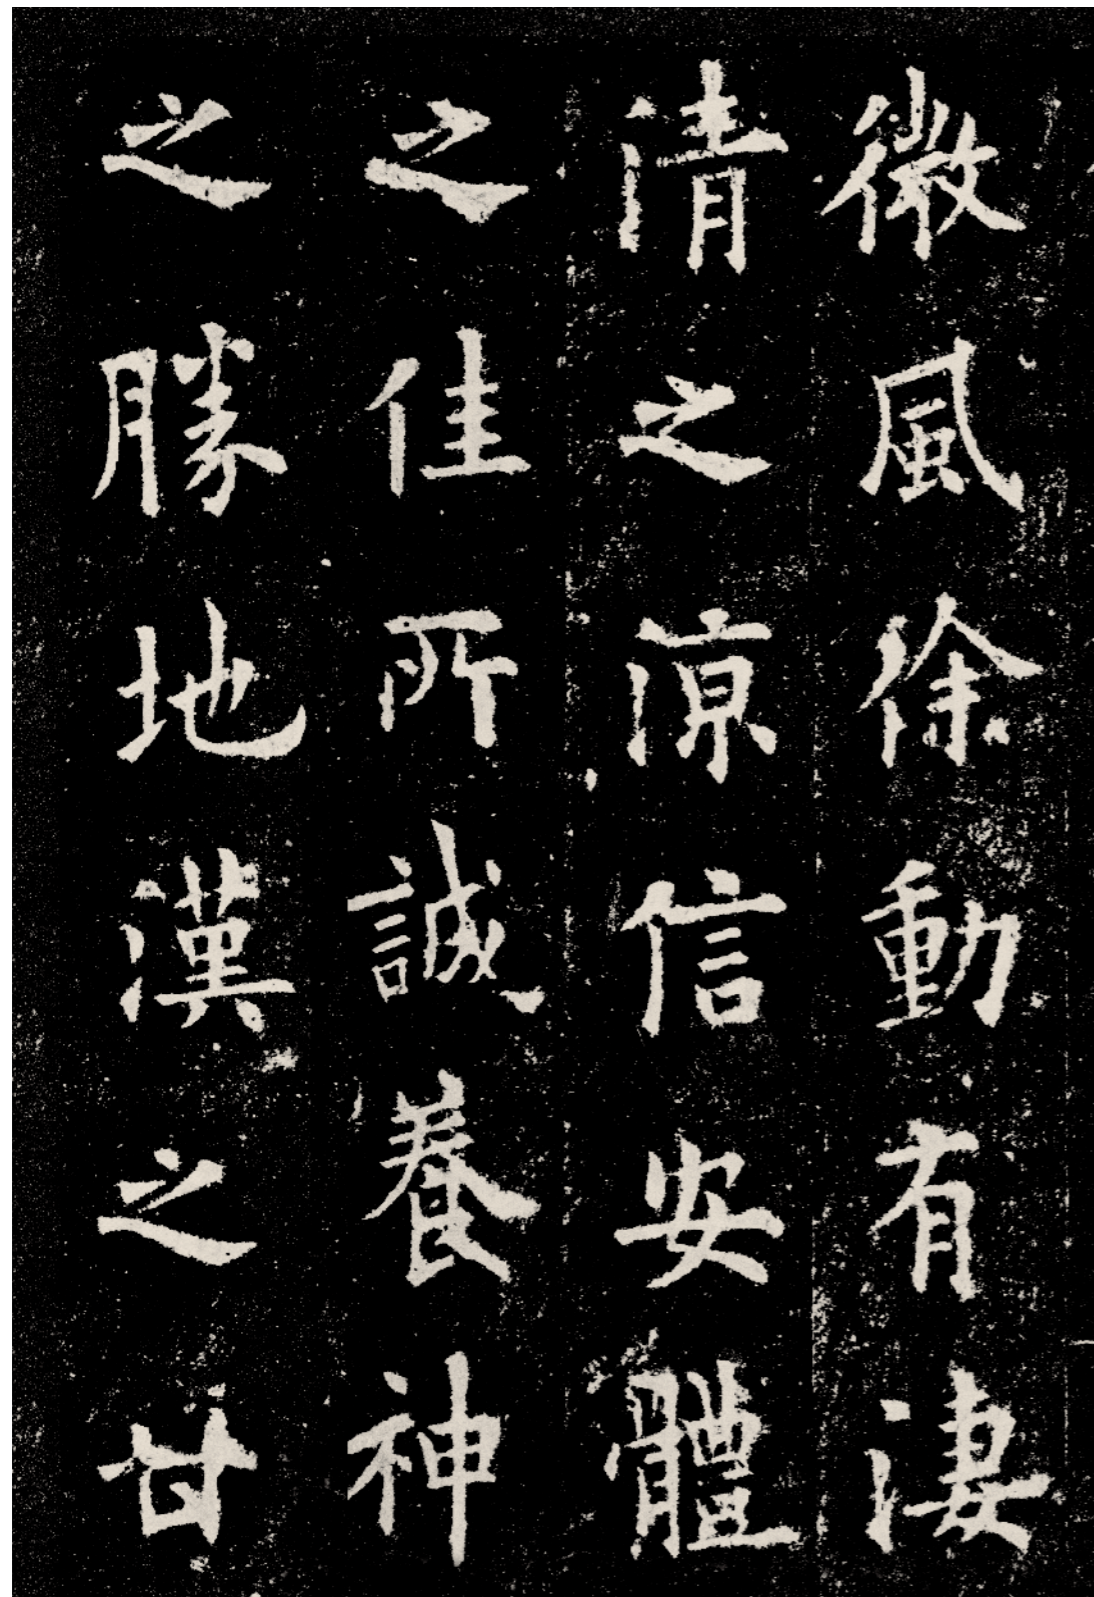 微風徐動有淒
清之涼信安體
之佳所誠養神
之勝地漢之甘